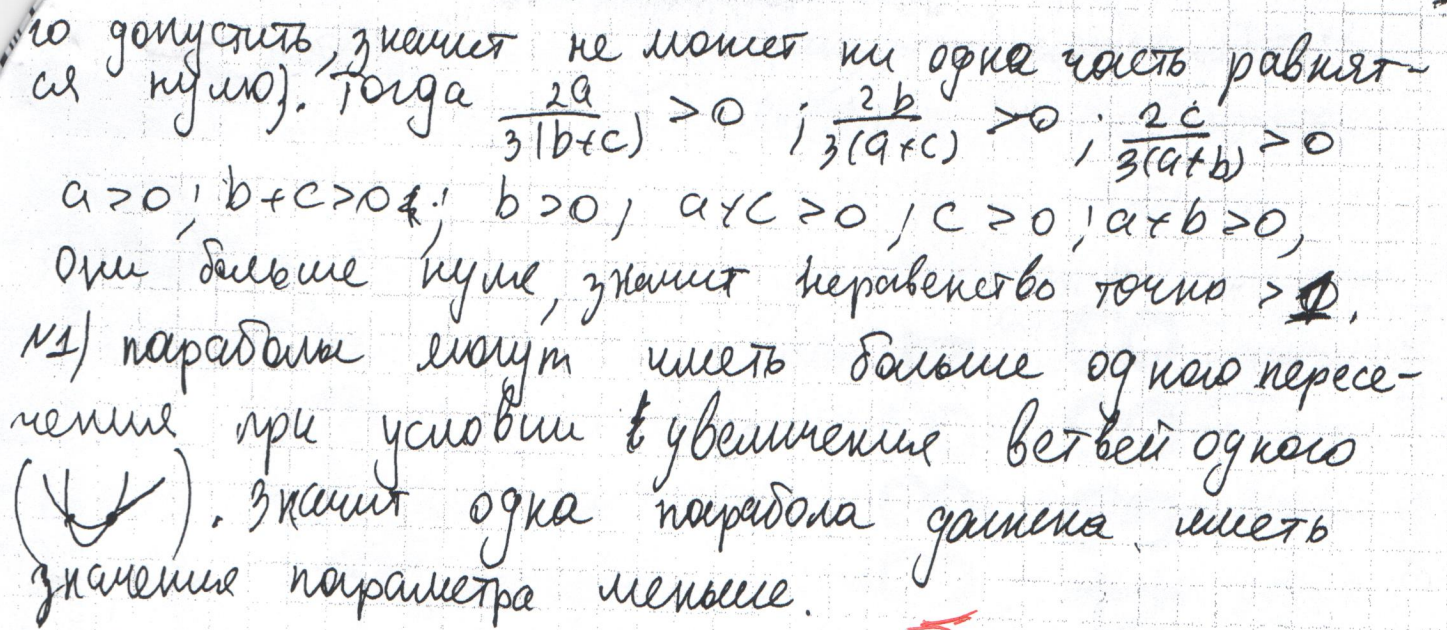 го допустить, значит не может ни одна часть равнят-
ся нулю). Тогда 2a/3(b+c) > 0 ; 2b/3(a+c) > 0 ; 2c/3(a+b) > 0
a>0; b+c>0; b>0; a+c>0; c>0; a+b>0,
Они больше нуля, значит неравенство точно >1.
№1) параболы могут иметь больше одного пересе-
чения при условии увеличения ветвей одного
( ). Значит одна парабола должна иметь
значения параметра меньше.